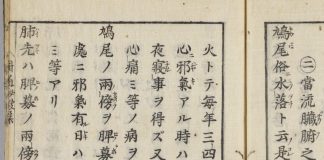 ㊁當流臟腑之
鳩尾俗水落ト云是
火トテ每年三四
心邪氣アル時ハ
夜寢事ヲ得ズ又
心痛ミ等ノ病ヲ
鳩尾ノ兩傍ヲ脾募
處ニ邪氣有日ハ
ミ等アリ
肺先ハ脾募ノ兩傍